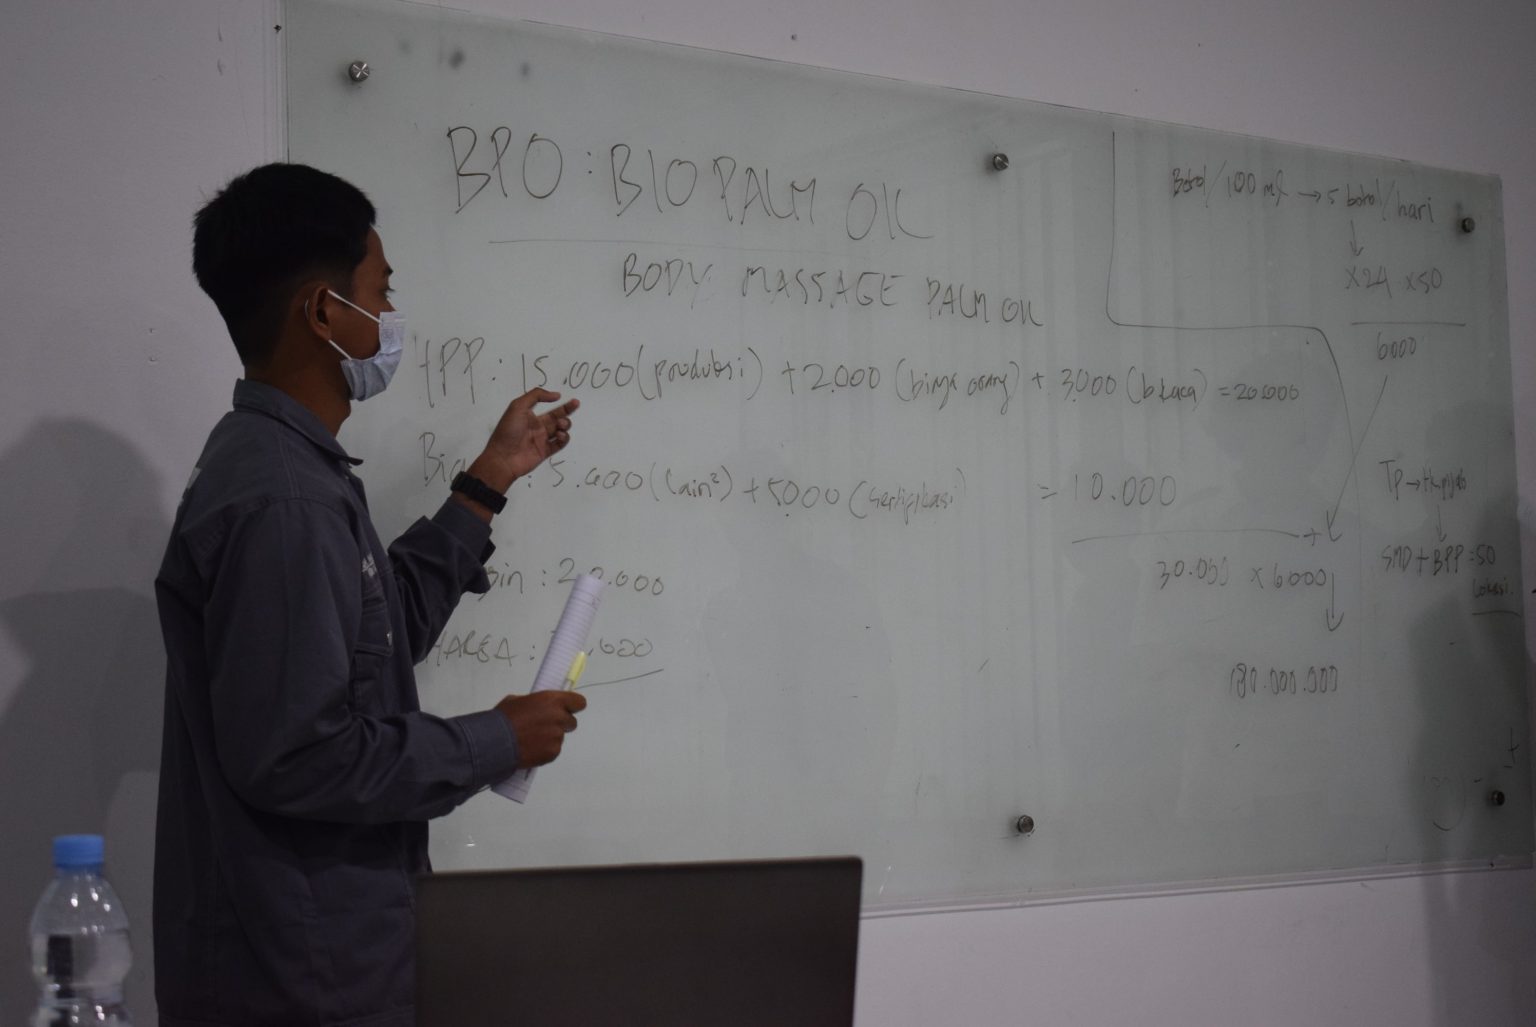 BPO : BIO PALM OIL
BODY MASSAGE PALM OIL
HPP : 15.000 (produksi) + 2.000 (biaya orang) + 3.000 (b. kaca) = 20.000
5.000 (lain²) + 5000 (sertifikasi) = 10.000
30.000 x 6000
180.000.000
HARGA :
Botol/100 ml → 5 botol/hari
x24 x50
6000
TP →
SMD + BPP = 50
lokasi.